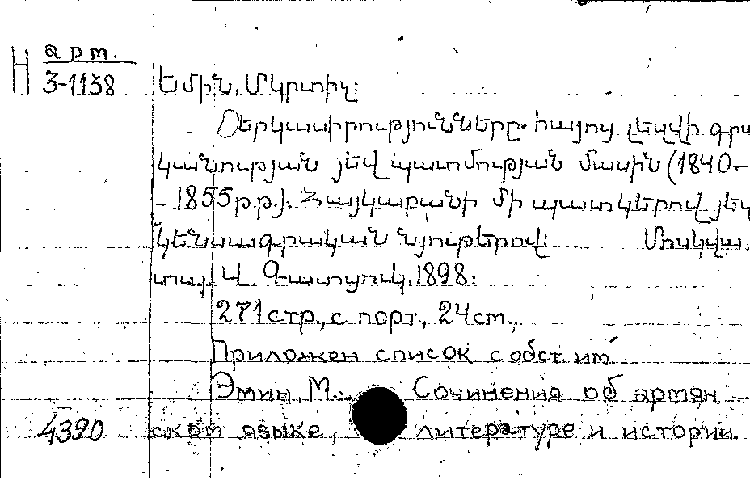 H арт.
3-1138 Եմին, Մկրտիչ
Երկասիրություններըհայոց լեզվի գրա
կանության յեվ պատմության մասին (1840-
-1855թ.թ.). Հայկարանի մի պատկերով յեվ
կենսագրական նյութերով: Մոսկվա,
տպ. Վ. Գատցուկ, 1898.
271стр., с порт., 24см.,
Приложен список собст. им.
Эмин, М. Сочинения об армян
4390 ском языке, литературе и истории.